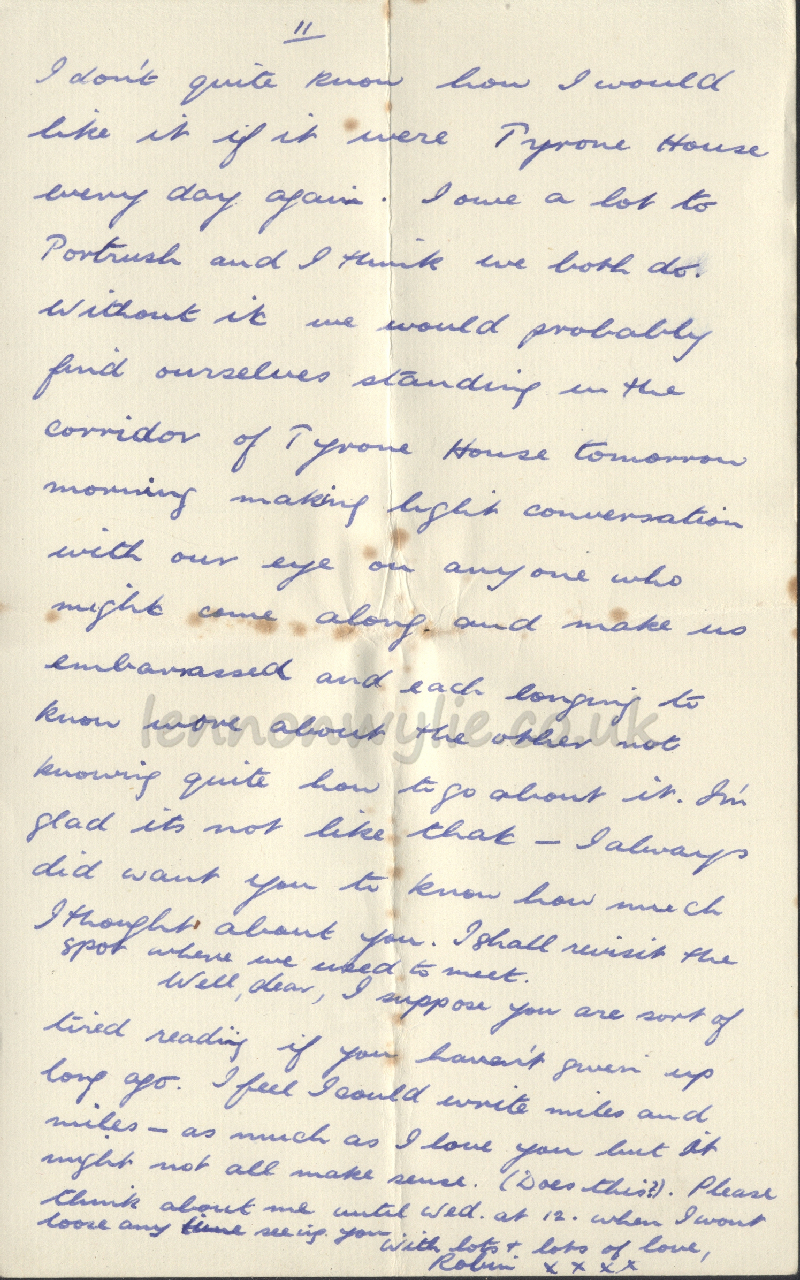 11
I don't quite know how I would
like it if it were Tyrone House
every day again. I owe a lot to
Portrush and I think we both do.
Without it we would probably
find ourselves standing in the
corridor of Tyrone House tomorrow
morning making light conversation
with our eye on anyone who
might come along and make us
embarrassed and each longing to
know more about the other not
lennonwylie.co.uk
knowing quite how to go about it. I'm
glad its not like that — I always
did want you to know how much
I thought about you. I shall revisit the
spot where we used to meet.
Well, dear, I suppose you are sort of
tired reading if you haven't given up
long ago. I feel I could write miles and
miles — as much as I love you but it
might not all make sense. (Does this?). Please
think about me until Wed. at 12. when I wont
loose any time seeing you
With lots + lots of love,
Robin x x x x